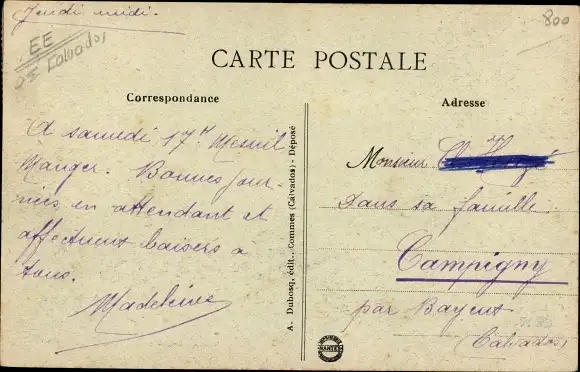 Jeudi midi.
EE
DE Calvados
800
CARTE POSTALE
Correspondance
Adresse
A samedi 17H Mesnil
Mauger. Bonnes jour-
nées en attendant et
affectueux baisers à
tous.
Madeleine
A. Dubosq, édit., Commes (Calvados) - Déposé
Monsieur
dans sa famille
Campigny
par Bayeux
(Calvados)
NANTES